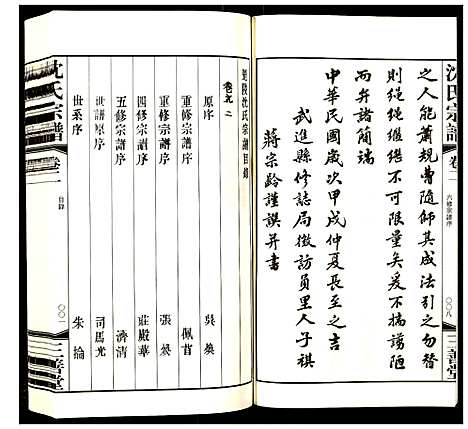 沈氏宗譜
卷二
六修宗譜序
〇〇八
三善堂
之人能蕭規曹隨師其成法引之勿替
則繩繩繼繼不可限量矣爰不揣謭陋
而弁諸簡端
中華民國歲次甲戌仲夏長至之吉
武進縣修誌局徵訪員里人子祺
蔣宗齡謹譔并書
毘陵沈氏宗譜目錄
卷之二
原序 吳奐
重修宗譜序 佩蒼
重修宗譜序 張燊
四修宗譜序 莊殿華
五修宗譜序 濟清
世譜原序 司馬光
世系序 朱掄
沈氏宗譜
卷二
目錄
〇〇一
三善堂